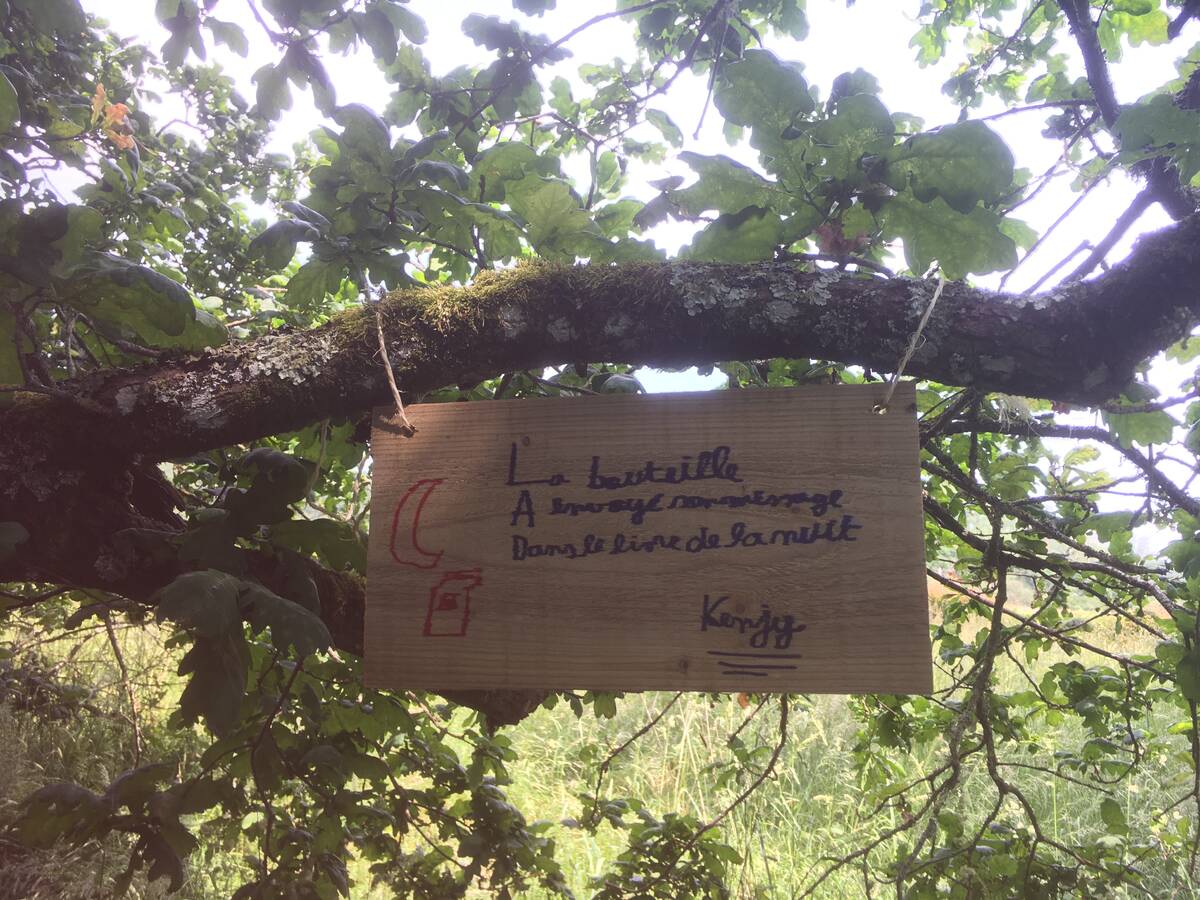 La bouteille
A envoyé son message
Dans le livre de la nuit
Kenjy